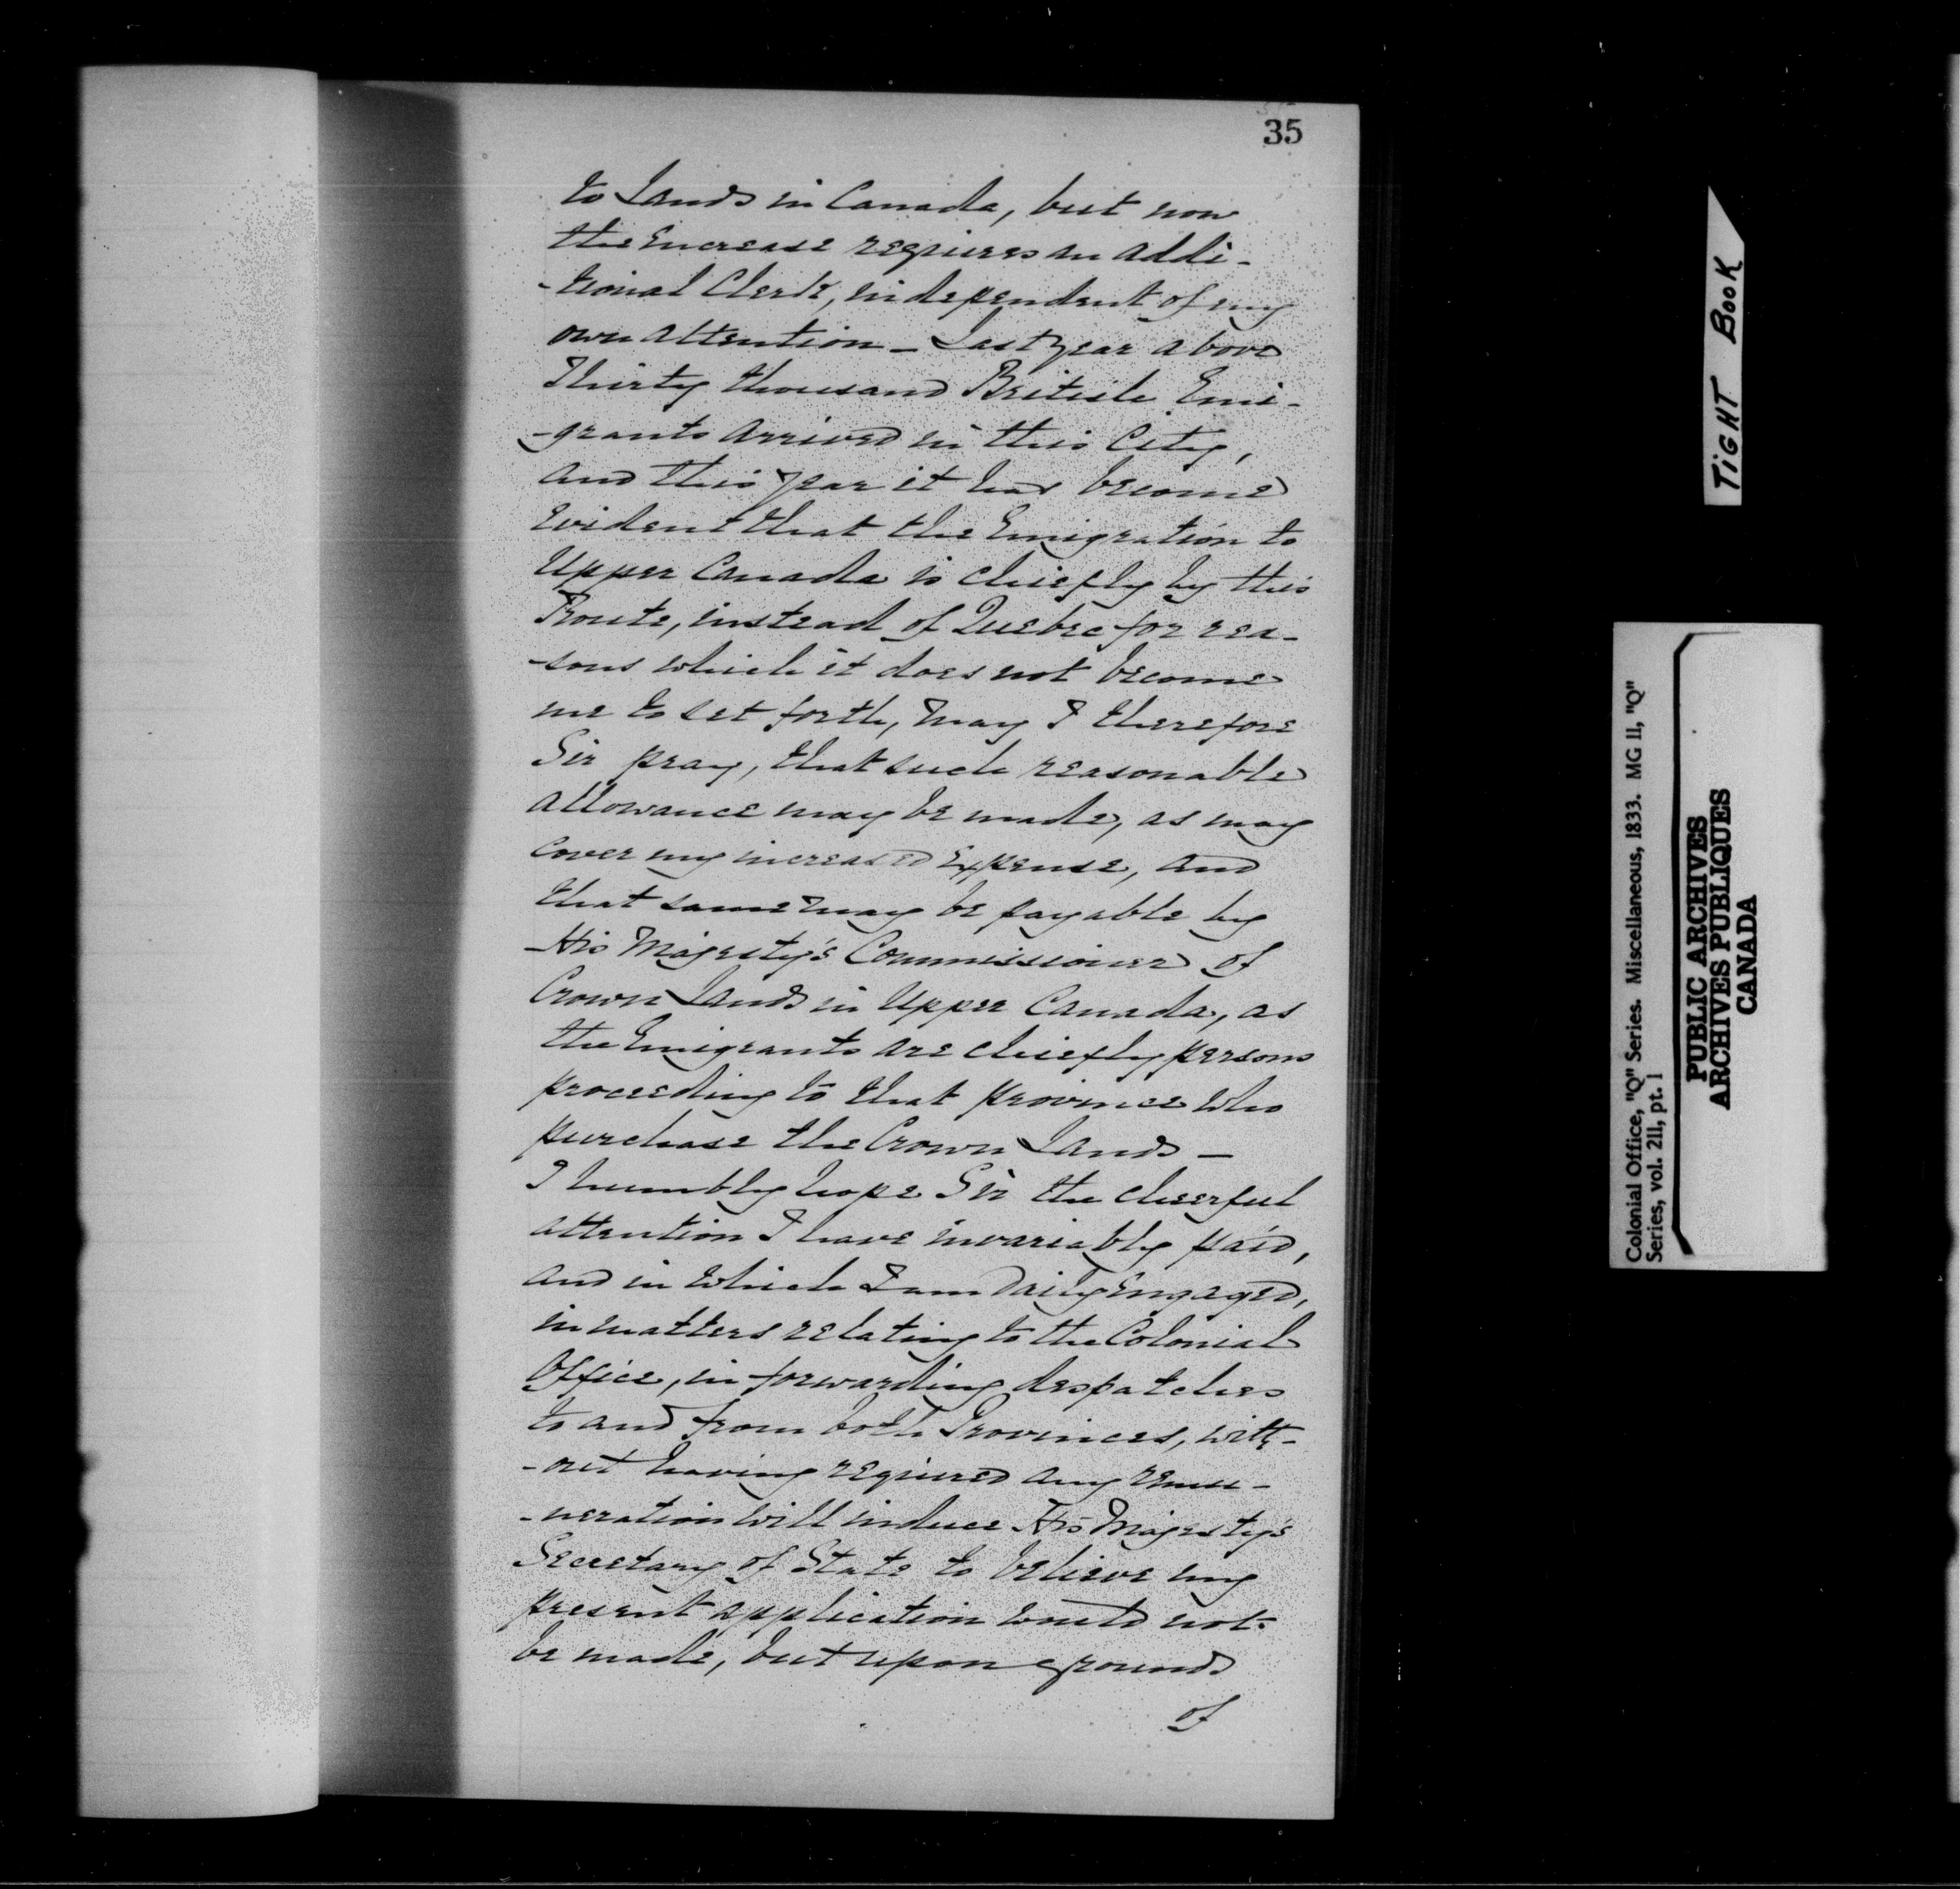 35
to Lands in Canada, but now
the increase requires an addi-
-tional Clerk, independent of my
own attention_ Last year above
Thirty thousand British Emi-
-grants arrived in this City,
and this year it has become
evident that the Emigration to
Upper Canada is chiefly by this
Route, instead of Quebec for rea-
-sons which it does not become
me to set forth, may I therefore
Sir pray, that such reasonable
allowance may be made, as may
cover my increased expense, and
that same may be payable by
His Majesty's Commissioner of
Crown Lands in Upper Canada, as
the Emigrants are chiefly persons
proceeding to that province who
purchase the Crown Lands_
I humbly hope Sir the cheerful
attention I have invariably paid,
and in which I am daily engaged,
in matters relating to the Colonial
Office, in forwarding despatches
to and from both Provinces, with-
-out having required any remu-
-neration will induce His Majesty's
Secretary of State to believe my
present application would not
be made, but upon grounds
of
TIGHT BOOK
Colonial Office, "Q" Series. Miscellaneous, 1833. MG 11, "Q"
Series, vol. 211, pt. 1
PUBLIC ARCHIVES
ARCHIVES PUBLIQUES
CANADA